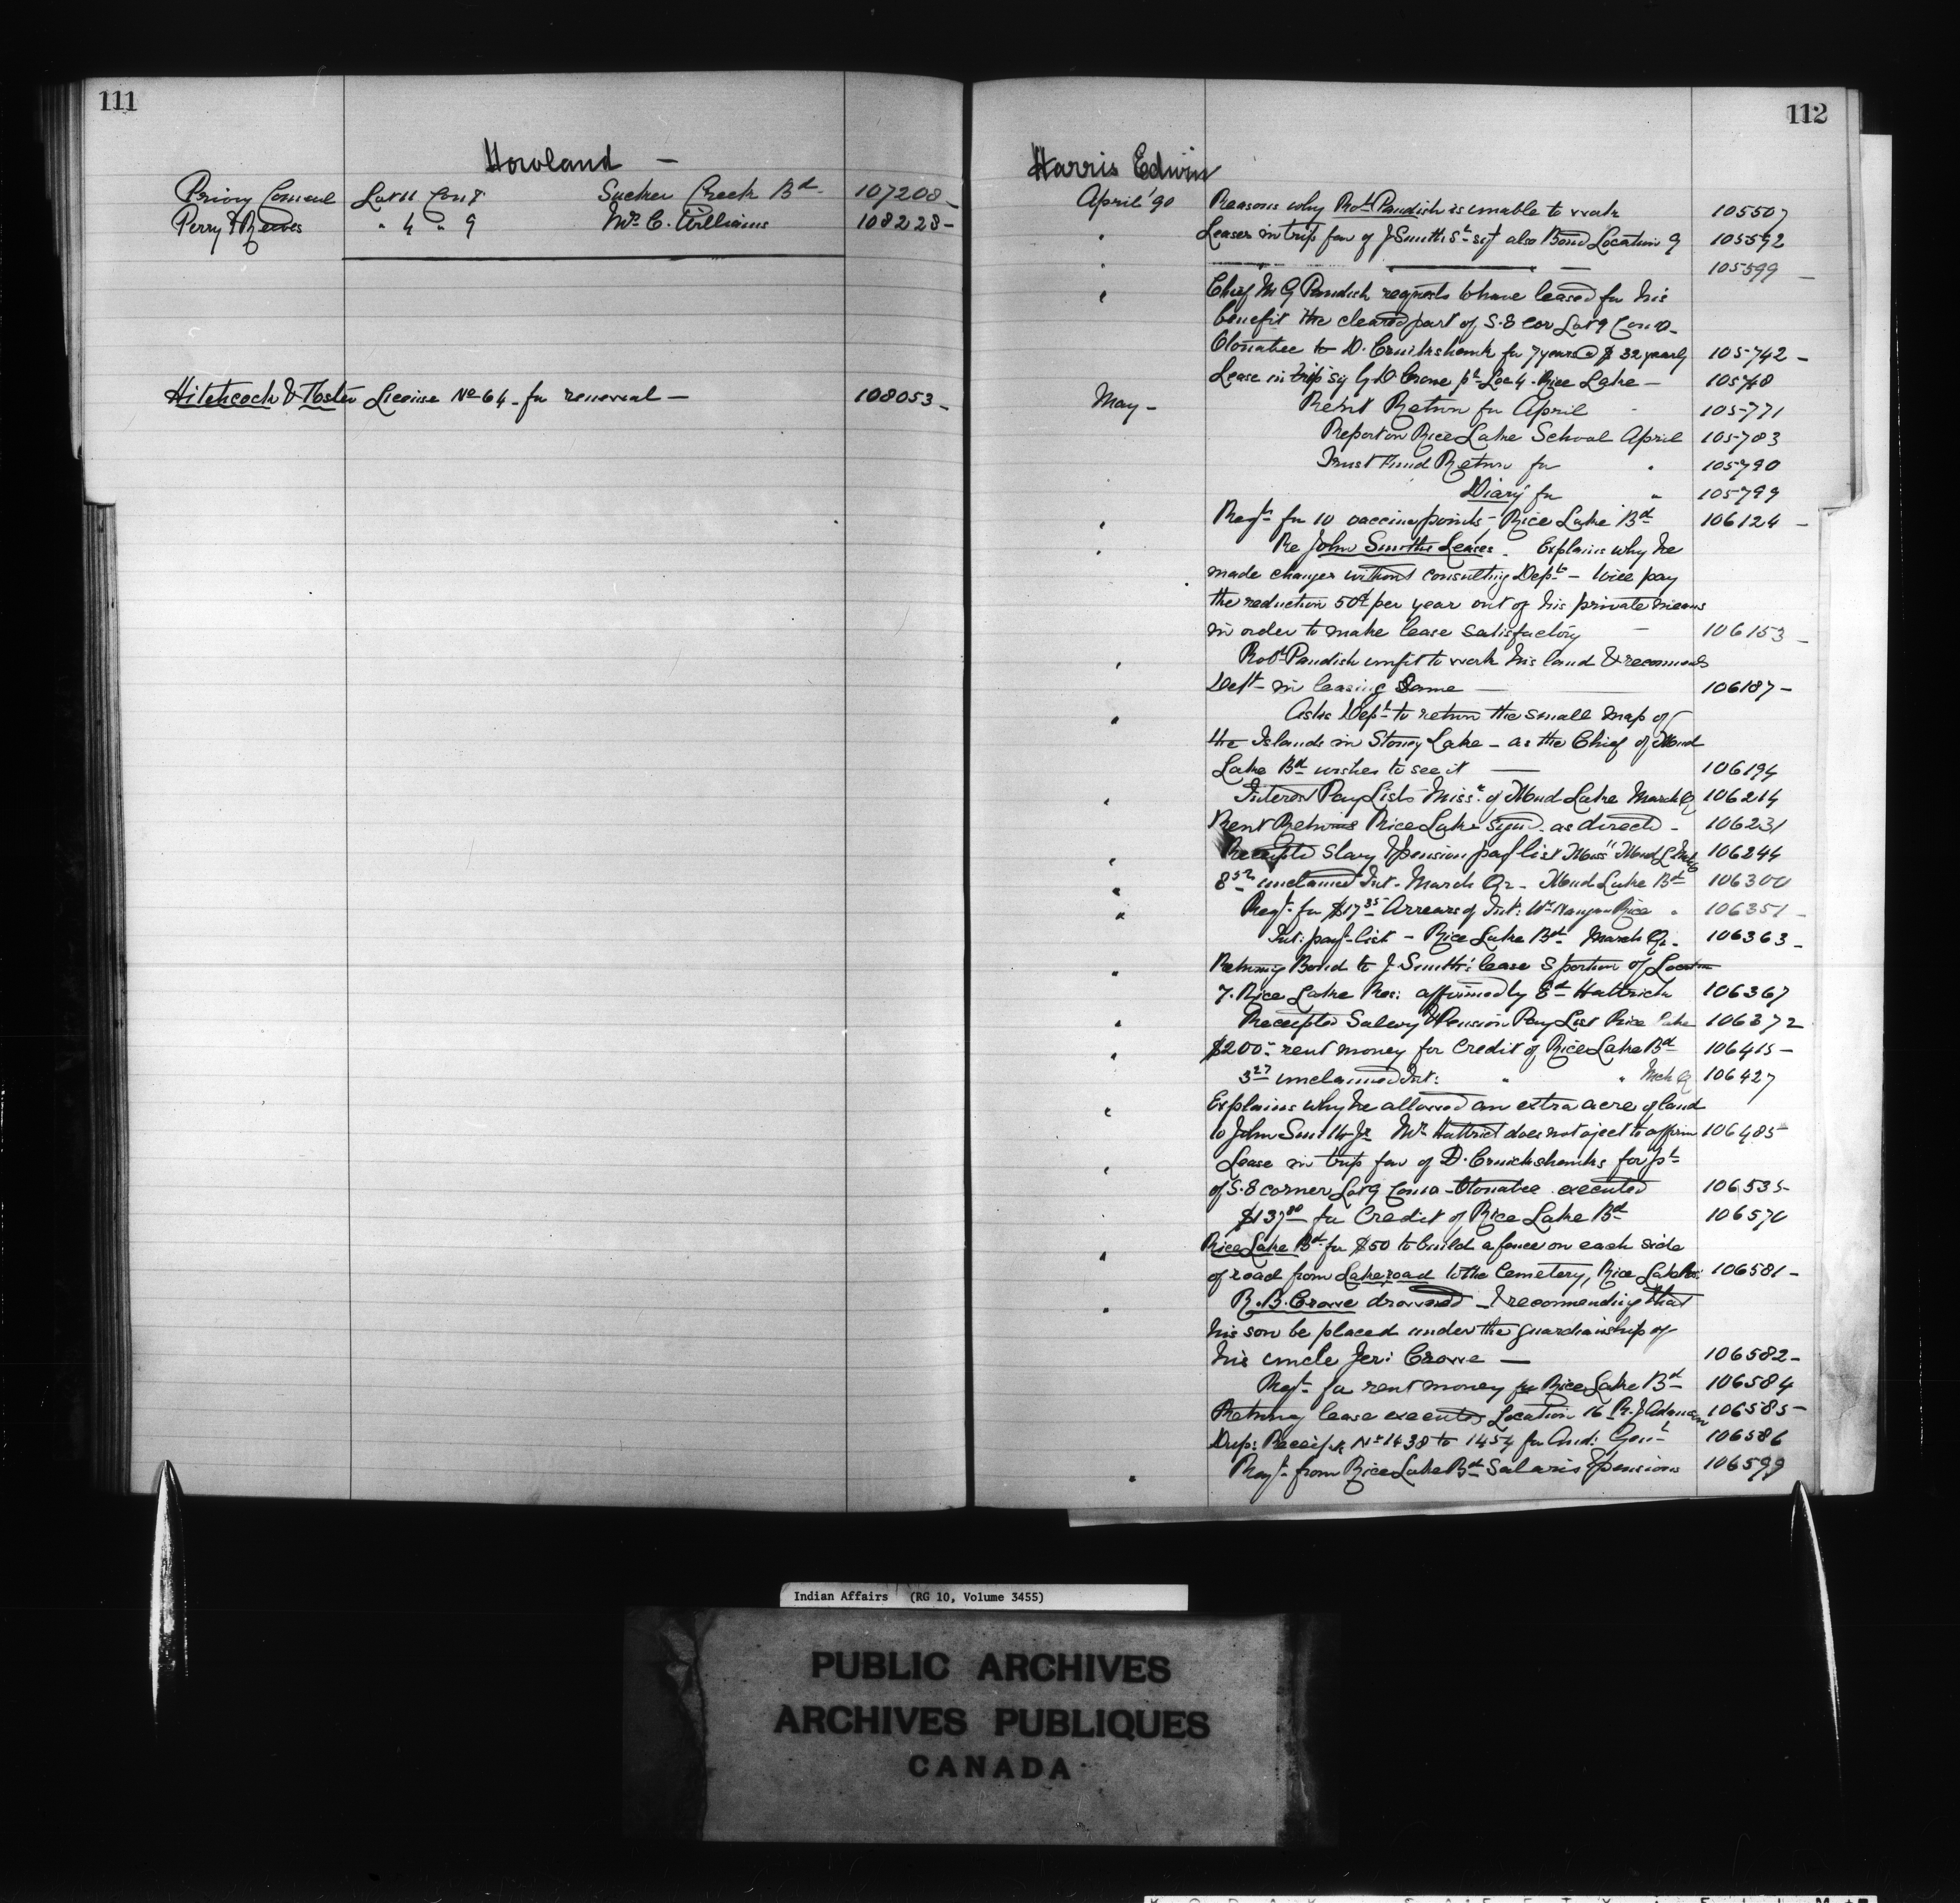 111
Howland —
Privy Council Lot 11 Con 8 Sucker Creek Bd 107208 _
Perry & Reeves " 4 " 9 Mr. C. Williams 108228 -
Hitchcock & Foster License No 64 - for renewal — 108053 -
112
Harris Edwin
April '90 Reasons why Robt Paudish is unable to work 105507
" Leases in trip fav of J Smith Sr sig also Bond Location 9 105592
" 105599 -
" Chief M G Paudish requests to have leased for his
benefit the cleared part of S.E cor Lot 9 Con
Otonabee to D. Cruikshank for 7 years @ $ 32 yearly 105742 -
Lease in trip sig G D Crowe pt Loc 4 - Rice Lake — 105748
May - Rent Return for April 105771
Report on Rice Lake School April 105783
Trust Fund Return for " 105790
Diary for " 105799
" Reqt for 10 vaccine points - Rice Lake Bd 106124 -
" Re John Smiths Leases. Explains why he
made changes without consulting Dept - will pay
the reduction 50¢ per year out of his private means
in order to make lease satisfactory — 106153 _
" Robt Paudish unfit to work his land & recommends
Dept - in leasing Same — 106187 -
" Asks Dept to return the small map of
the Islands in Stoney Lake - as the Chief of Mud
Lake Bd wishes to see it — 106194
" Interest Pay Lists Misss of Mud Lake March Q 106214
Rent Returns Rice Lake sign. as directd - 106231
" Receipted Slary & pension pay list Miss" Mud L 106244
" 8 52 unclaimed Int - March Qr - Mud Lake Bd 106300
" Reqt. for $17 35 Arrears of Int: Wm Rice " 106351 -
Int: pay-list - Rice Lake Bd March Qr. 106363 -
" Returning Bond to J. Smith's lease S portion of Location
7. Rice Lake Res: affirmed by Ed Hattrick 106367
" Receipted Salary & Pension Pay List Rice Lake 106372
" $200 - rent money for Credit of Rice Lake Bd 106415 -
3 27 unclaimed Int: " " Mch Q 106427
" Explains why he allowed an extra acre of land
to John Smith Jr Mr Hattrick does not oject to affirm 106485
" Lease in trip fav of D. Cruickshanks for pt
of S.E corner Lot 9 Con - Otonabee executed 106535
$137 80 for Credit of Rice Lake Bd 106570
" Rice Lake Bd for $50 to build a fence on each side
of road from Lake road to the Cemetery, Rice Lake Res: 106581 -
" R. B. Crowe drowned - & recommending that
his son be placed under the guardianship of
his uncle Jeri: Crowe — 106582 -
Reqt - for rent money for Rice Lake Bd 106584
Returning lease executed Location 16 R. J. Adamson 106585 -
Dup: Receipts Nos 1438 to 1454 for Aud: Genl 106586
" Reqt - from Rice Lake Bd Salaries & pensions 106599
Indian Affairs (RG 10, Volume 3455)
PUBLIC ARCHIVES
ARCHIVES PUBLIQUES
CANADA